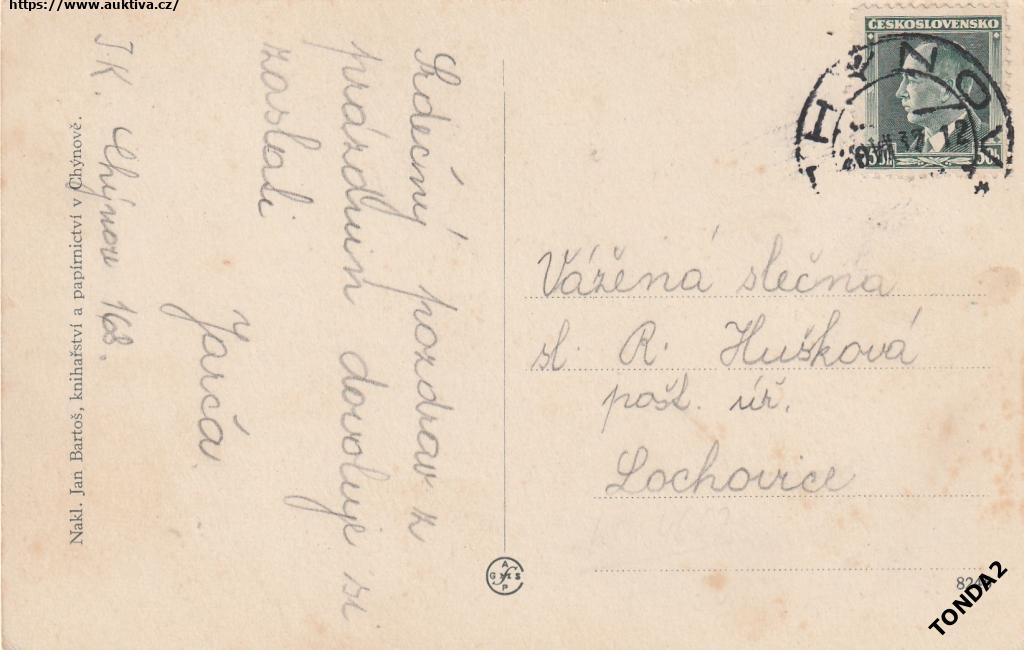 https://www.auktiva.cz/
ČESKOSLOVENSKO
CHÝNOV
37 12
50h
Srdečný pozdrav z
prázdnin dovoluje si
zaslati
Jarča.
J.K. Chýnov 168.
Nakl. Jan Bartoš, knihařství a papírnictví v Chýnově.
Vážená slečna
sl. R. Hušková
pošt. úř.
Lochovice
TONDA2